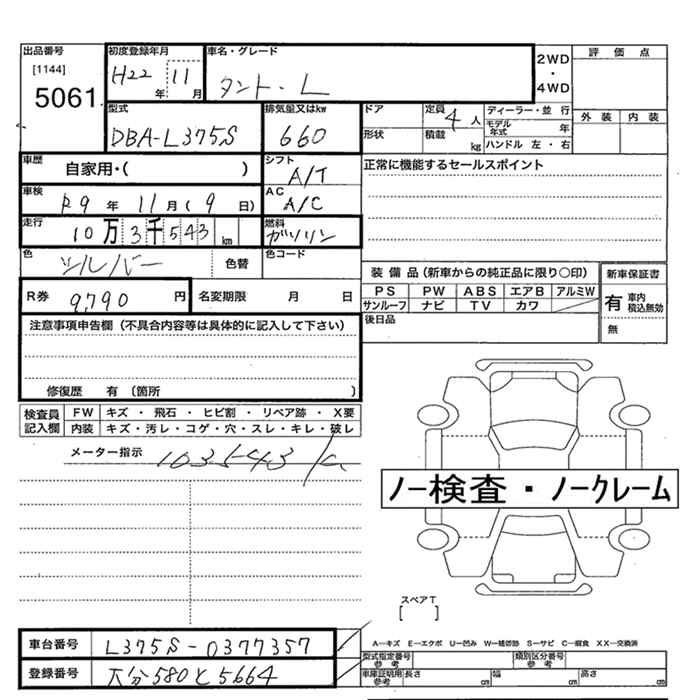 出品番号 初度登録年月 車名・グレード 2WD・4WD 評価点
[1144] H22年 11月 タント・L
5061
型式 排気量又はkw ドア 定員 4人 ディーラー・並行 外装 内装
DBA-L375S 660 形状 積載 kg モデル年式 年
ハンドル 左・右
車歴 自家用・( ) シフト A/T 正常に機能するセールスポイント
車検 R9年 11月(9日) AC A/C
走行 10万3千543km 燃料 ガソリン
色 シルバー 色替 色コード
装備品(新車からの純正品に限り〇印) 新車保証書
R券 9,790円 名変期限 月 日 PS PW ABS エアB アルミW 有 車内 積込無効
サンルーフ ナビ TV カワ 無
注意事項申告欄(不具合内容等は具体的に記入して下さい) 後日品
修復歴 有(箇所 )
検査員記入欄 FW キズ・飛石・ヒビ割・リペア跡・X要
内装 キズ・汚レ・コゲ・穴・スレ・キレ・破レ
メーター指示 103543
ノー検査・ノークレーム
スペアT
[ ]
車台番号 L375S-0377357
A―キズ E―エクボ U―凹み W―補修跡 S―サビ C―腐食 XX―交換済
型式指定番号 参考 類別区分番号 参考
登録番号 大分580と5664
車庫証明用 参考 長さ cm 幅 cm 高さ cm